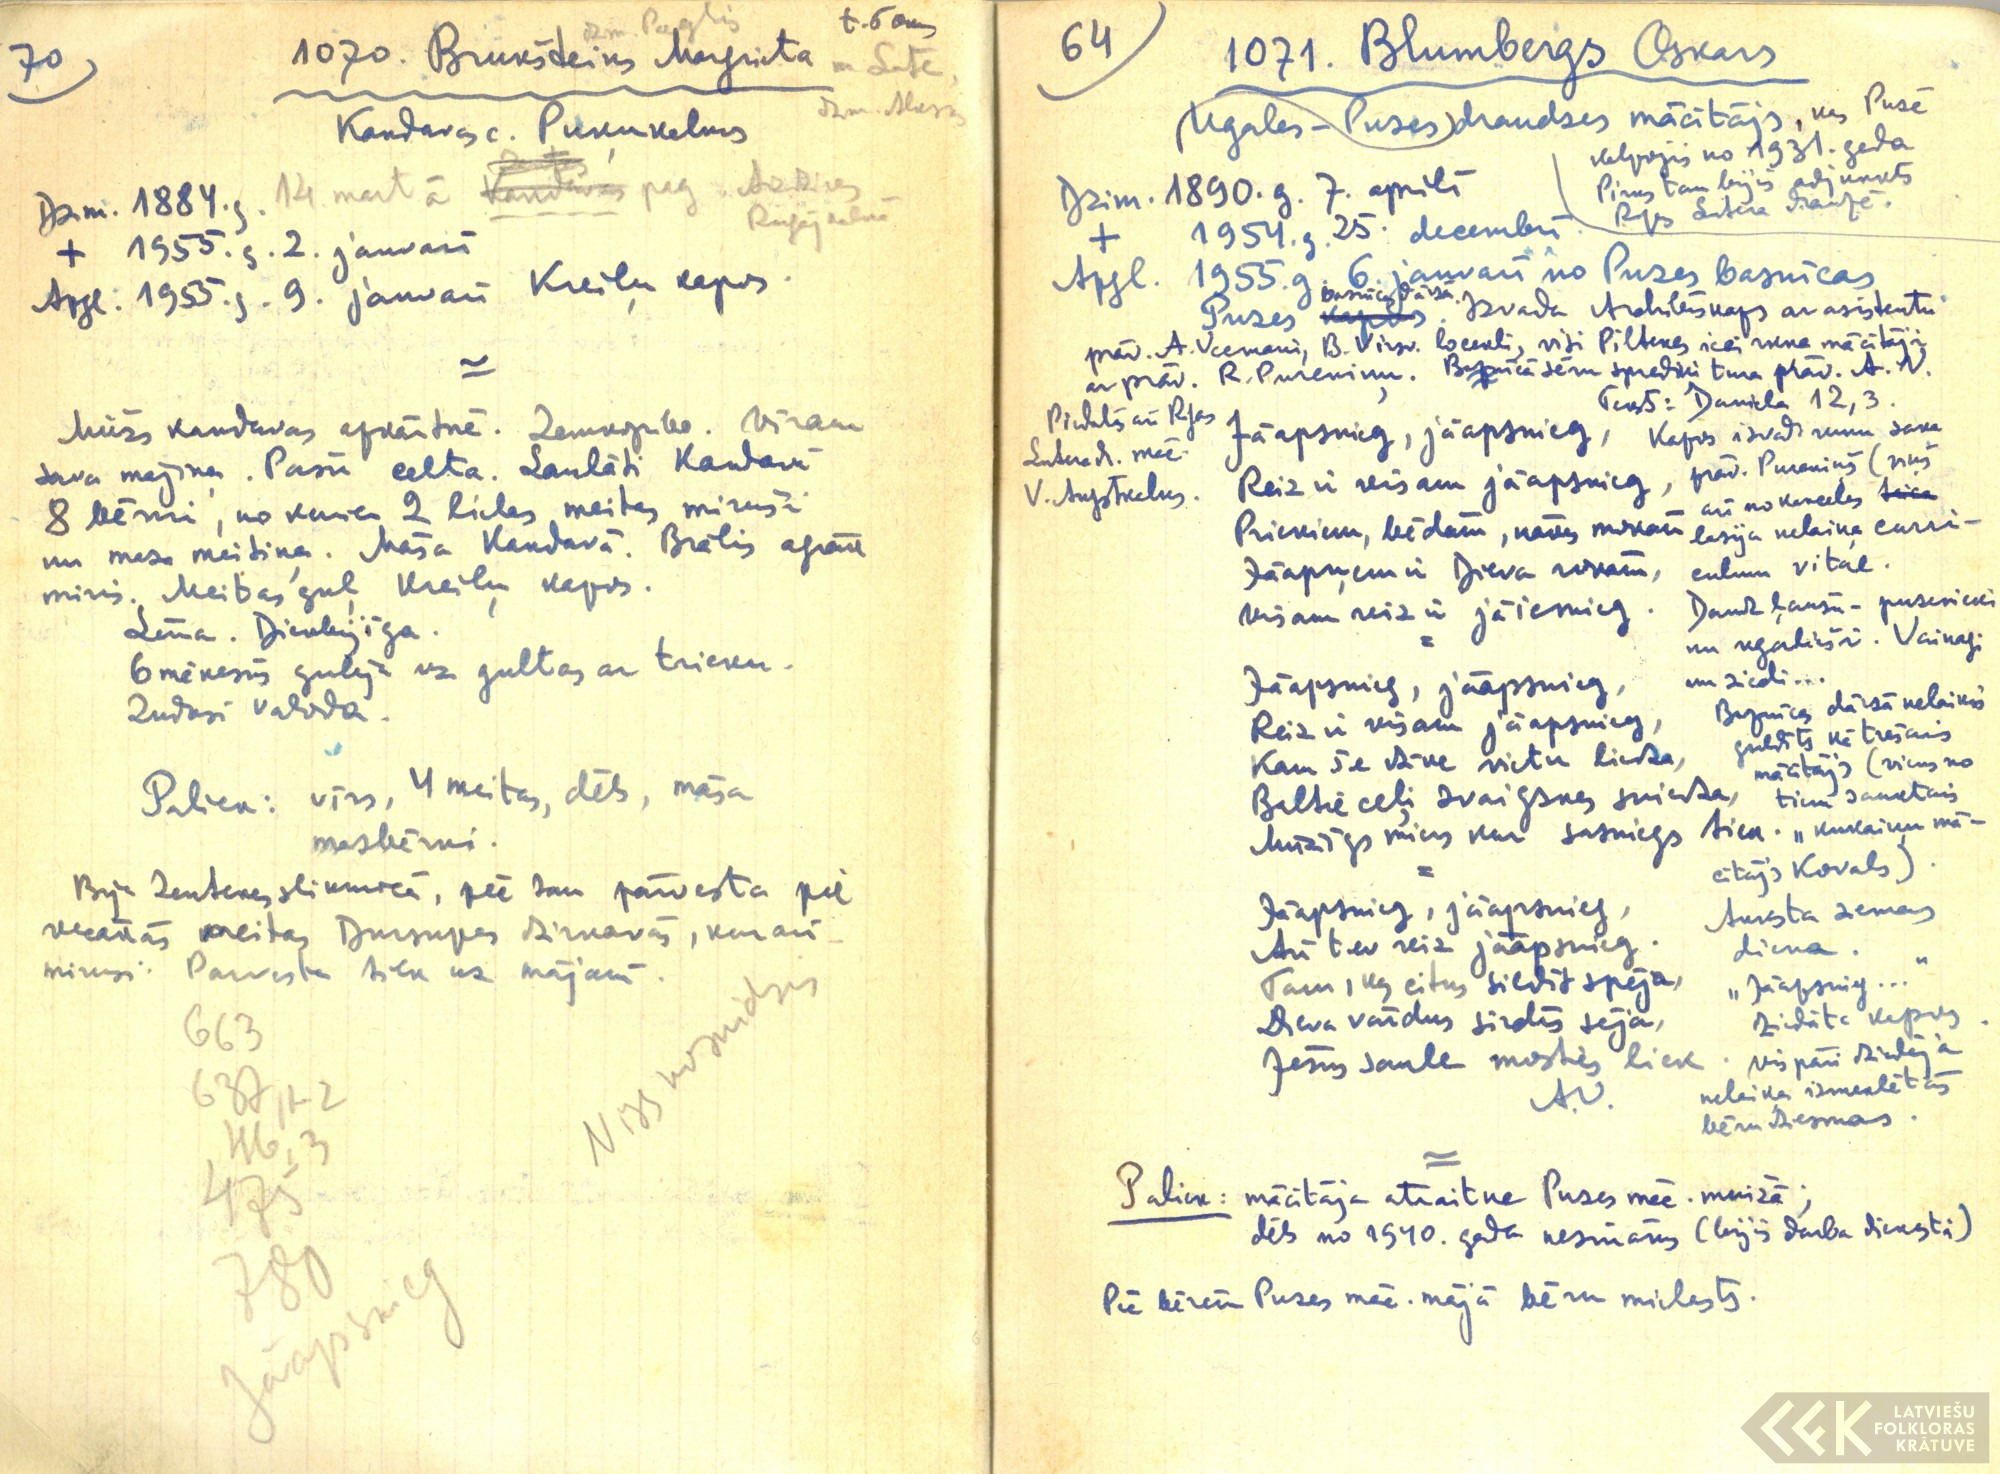 70
1070. Brukšteins Margrieta
Kandavas c. Puķukalnos
Dzim. 1884. g. 14. martā Kandavas pag.
+ 1955. g. 2. janvārī
Apgl. 1955. g. 9. janvārī Kreiļu kapos.
=
Mūžs Kandavas apkārtnē. Zemkopībā. Vīram
sava mājiņa. Pašu celta. Laulāti Kandavā
8 bērni, no kuriem 2 lielas meitas mirušas
un maza meitiņa. Māsa Kandavā. Brālis agrāk
miris. Meitas guļ Kreiļu kapos.
Lēna. Dievbijīga.
6 mēnesis gulēja uz gultas ar trieku.
Zudusi valoda.
Paliek: vīrs, 4 meitas, dēls, māsa
mazbērni.
Bija Zentenes slimnīcā, pēc tam pārvesta pie
vecākās meitas Dursupes dzirnavās, kur arī
mirusi. Pārvesta tiek uz mājām.
663
637, 1-2
46, 3
475
780
Jāapsnieg
64
1071. Blumbergs Oskars
Ugales-Puzes draudzes mācītājs, kas Puzē
kalpojis no 1931. gada
Pirms tam bijis adjunkts
Rīgas Lutera draudzē.
Dzim. 1890. g. 7. aprīlī
+ 1954. g. 25. decembrī
Apgl. 1955. g. 6. janvārī no Puzes baznīcas
Puzes kapos baznīcas dārzā. Izvada Archibīskaps ar asistentu
prāv. A. Vecmani, B. Virsv. locekli, visi Piltenes iecirkņa mācītāji
ar prāv. R. Pureniņu. Baznīcā sēru sprediķi tura prāv. A. V.
Teksts: Daniela 12, 3.
Piedalās arī Rīgas
Lutera dr. māc.
V. Augstkalns.
Jāapsnieg, jāapsnieg,
Reiz ir visam jāapsnieg,
Priekiem, bēdām, nāves mokām
Jāapņem ir Dieva rokām,
Visam reiz ir jāiesnieg.
=
Jāapsnieg, jāapsnieg,
Reiz ir visam jāapsnieg,
Kam šie dzīve vietu liedza,
Baltie ceļi zvaigznes sniedza,
Mūžīgs miers kur sasniegs tiek.
=
Jāapsnieg, jāapsnieg,
Arī tev reiz jāapsnieg.
Tam, kas citus sildīt spēja,
Dieva vārdus sirdīs sēja,
Jēzus saule mosties liek.
A.V.
Kapos izvadrunu saka
prāv. Pureniņš (viņš
arī no kanceles
lasīja nelaiķa curri-
culum vitae.
Daudz ļaužu - puzenieki
un ugalieši. Vainagi
un ziedi...
Baznīcas dārzā nelaiķis
guldīts kā trešais
mācītājs (viens no
tiem sauktais
„kukaiņu mā-
cītājs Kovals).
Auksta ziemas
diena.
„Jāapsnieg..."
dziedāta kapos.
vispāri dziedāja
nelaiķa izmeklētās
bēru dziesmas.
=
Paliek: mācītāja atraitne Puzes māc. muižā;
dēls no 1940. gada nezināms (bijis darba dienestā)
Pēc bērēm Puzes māc. mājā bēru mielasts.
LATVIEŠU
FOLKLORAS
KRĀTUVE